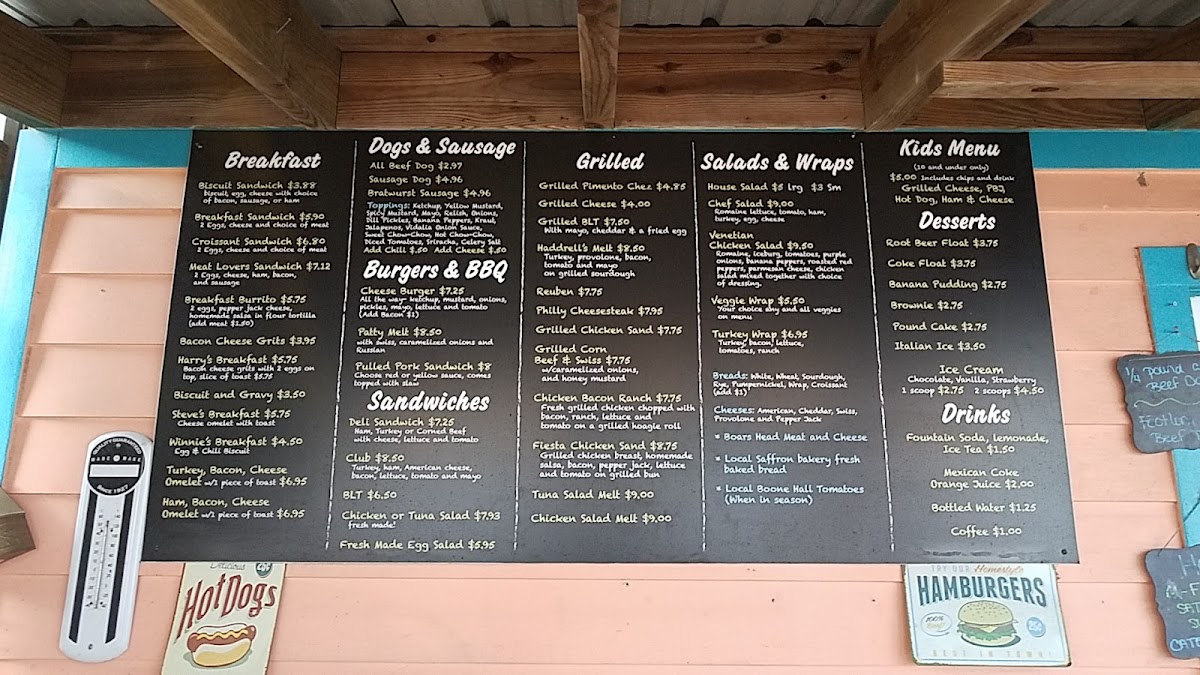 Breakfast
Biscuit Sandwich $3.88
biscuit, egg, cheese with choice
of bacon, sausage, or ham
Breakfast Sandwich $5.90
2 Eggs, cheese and choice of meat
Croissant Sandwich $6.80
2 Eggs, cheese and choice of meat
Meat Lovers Sandwich $7.12
2 Eggs, cheese, ham, bacon,
and sausage
Breakfast Burrito $5.75
2 eggs, pepper jack cheese,
homemade salsa in flour tortilla
(add meat $1.50)
Bacon Cheese Grits $3.95
Harry's Breakfast $5.75
Bacon cheese grits with 2 eggs on
top, slice of toast $5.75
Biscuit and Gravy $3.50
Steve's Breakfast $5.75
Cheese omelet with toast
Winnie's Breakfast $4.50
Egg & Chili Biscuit
Turkey, Bacon, Cheese
Omelet w/1 piece of toast $6.95
Ham, Bacon, Cheese
Omelet w/1 piece of toast $6.95
Dogs & Sausage
All Beef Dog $2.97
Sausage Dog $4.96
Bratwurst Sausage $4.96
Toppings: Ketchup, Yellow Mustard,
Spicy Mustard, Mayo, Relish, Onions,
Dill Pickles, Banana Peppers, Kraut,
Jalapenos, Vidalia Onion Sauce,
Sweet Chow-Chow, Hot Chow-Chow,
Diced Tomatoes, Sriracha, Celery Salt
Add Chill $.50 Add Cheese $.50
Burgers & BBQ
Cheese Burger $7.25
All the way- ketchup, mustard, onions,
pickles, mayo, lettuce and tomato
(Add Bacon $1)
Patty Melt $8.50
with swiss, caramelized onions and
Russian
Pulled Pork Sandwich $8
Choose red or yellow sauce, comes
topped with slaw
Sandwiches
Deli Sandwich $7.25
Ham, Turkey or Corned Beef
with cheese, lettuce and tomato
Club $8.50
Turkey, ham, American cheese,
bacon, lettuce, tomato and mayo
BLT $6.50
Chicken or Tuna Salad $7.93
fresh made!
Fresh Made Egg Salad $5.95
Grilled
Grilled Pimento Chez $4.85
Grilled Cheese $4.00
Grilled BLT $7.50
With mayo, cheddar & a fried egg
Haddrell's Melt $8.50
Turkey, provolone, bacon,
tomato and mayo
on grilled sourdough
Reuben $7.75
Philly Cheesesteak $7.95
Grilled Chicken Sand $7.75
Grilled Corn
Beef & Swiss $7.75
w/caramelized onions,
and honey mustard
Chicken Bacon Ranch $7.75
Fresh grilled chicken chopped with
bacon, ranch, lettuce and
tomato on a grilled hoagie roll
Fiesta Chicken Sand $8.75
Grilled chicken breast, homemade
salsa, bacon, pepper jack, lettuce
and tomato on grilled bun
Tuna Salad Melt $9.00
Chicken Salad Melt $9.00
Salads & Wraps
House Salad $5 lrg $3 Sm
Chef Salad $9.00
Romaine lettuce, tomato, ham,
turkey, egg, cheese
Venetian
Chicken Salad $9.50
Romaine, iceburg, tomatoes, purple
onions, banana peppers, roasted red
peppers, parmesan cheese, chicken
salad mixed together with choice
of dressing.
Veggie Wrap $5.50
Your choice any and all veggies
on menu
Turkey Wrap $6.95
Turkey, bacon, lettuce,
tomatoes, ranch
Breads: White, Wheat, Sourdough,
Rye, Pumpernickel, Wrap, Croissant
(add $1)
Cheeses: American, Cheddar, Swiss,
Provolone and Pepper Jack
* Boars Head Meat and Cheese
* Local Saffron bakery fresh
baked bread
* Local Boone Hall Tomatoes
(When in season)
Kids Menu
(10 and under only)
$5.00 Includes chips and drink
Grilled Cheese, PBJ,
Hot Dog, Ham & Cheese
Desserts
Root Beer Float $3.75
Coke Float $3.75
Banana Pudding $2.75
Brownie $2.75
Pound Cake $2.75
Italian Ice $3.50
Ice Cream
Chocolate, Vanilla, Strawberry
1 scoop $2.75 2 scoops $4.50
Drinks
Fountain Soda, lemonade,
Ice Tea $1.50
Mexican Coke
Orange Juice $2.00
Bottled Water $1.25
Coffee $1.00
SINCE 1927
Delicious
Hot Dogs
TRY OUR Homestyle
HAMBURGERS
100%
BEST IN TOWN!
1/4 Pound
Beef
Beef
M-F